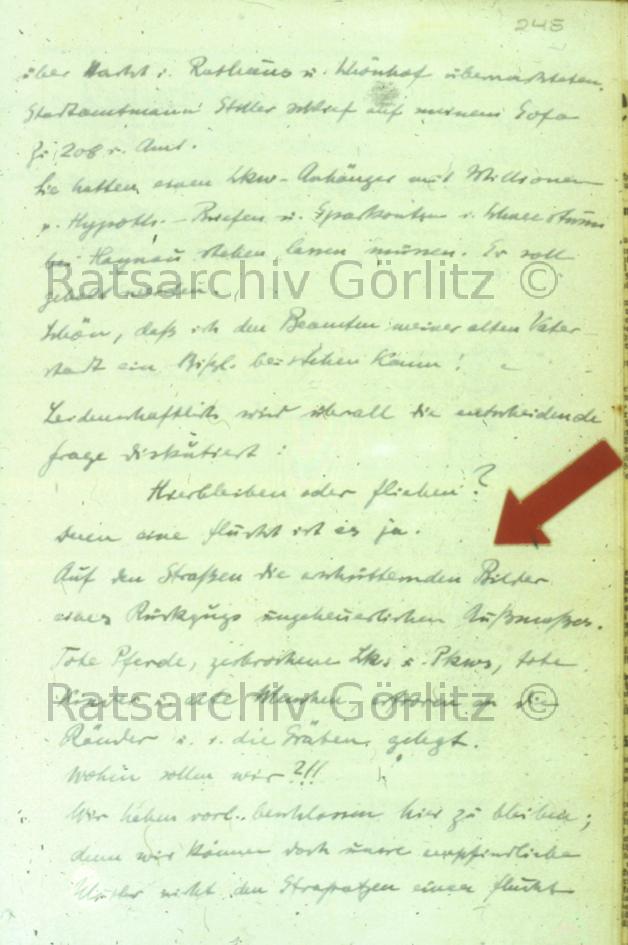 245
über Nacht i. Rathaus u. Schönhof übernachteten.
Stadtamtmann Stiller schlief auf meinem Sofa
Zi. 208 i. Amt.
Sie hatten einen Lkw-Anhänger mit Millionen
v. Hypoth.-Briefen u. Sparkonten i.
bei Haynau stehen lassen müssen. Er soll
geholt werden.
Ratsarchiv Görlitz ©
Schön, daß ich den Beamten meiner alten Vater-
stadt ein Bißl. beistehen kann!
Leidenschaftlich wird überall die entscheidende
Frage diskutiert:
Hierbleiben oder fliehen?
Denn eine Flucht ist es ja.
Auf den Straßen die erschütternden Bilder
eines Rückzugs ungeheuerlichen Außmaßes.
Tote Pferde, zerbrochene Lks u. Pkws, tote
Kinder u. alte Menschen, erfroren an die
Ratsarchiv Görlitz ©
Ränder u. i. die Gräben gelegt.
Wohin sollen wir?!!
Wir haben vorl. beschlossen hier zu bleiben;
denn wir können doch unsre empfindliche
Mutter nicht den Strapatzen einer Flucht